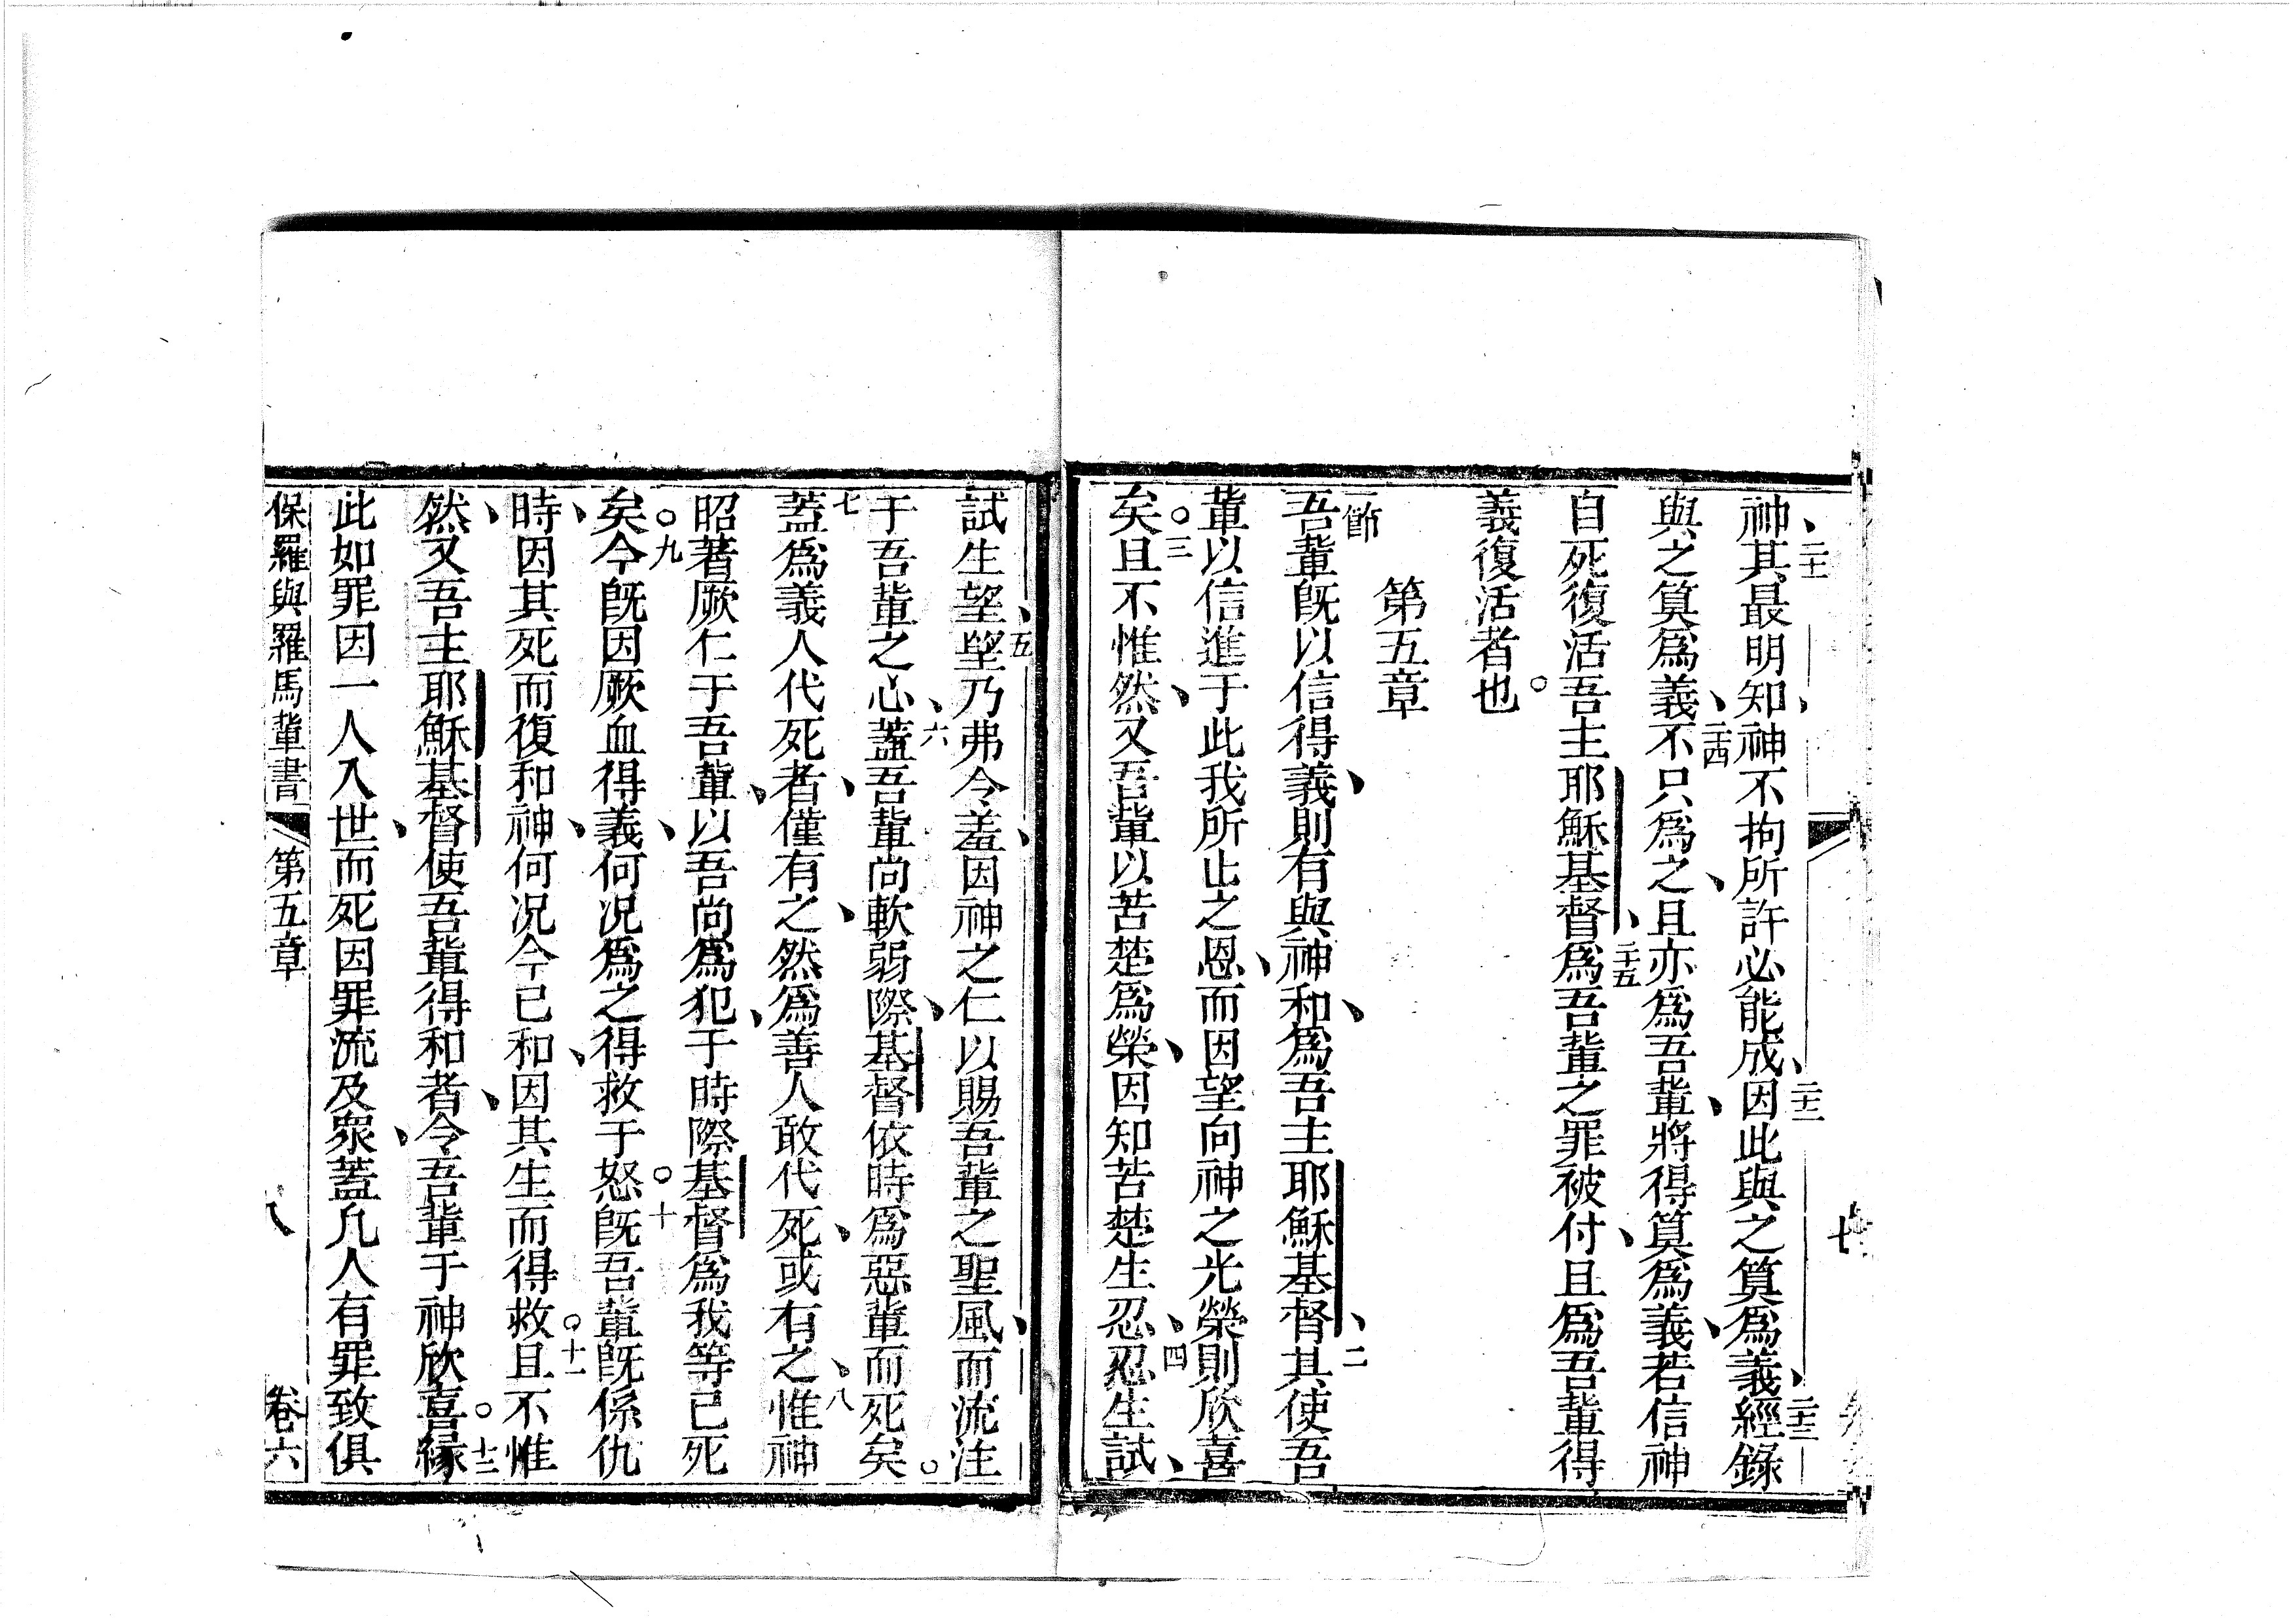 神其最明知神不拘所許必能成因此與之算爲義經錄
與之算爲義不只爲之且亦爲吾輩將得算爲義若信神
自死復活吾主耶穌基督爲吾輩之罪被付且爲吾輩得
義復活者也
第五章
吾輩既以信得義則有與神和爲吾主耶穌基督其使吾
輩以信進于此我所止之恩而因望向神之光榮則欣喜
矣且不惟然又吾輩以苦楚爲榮因知苦楚生忍忍生試
試生望望乃弗令羞因神之仁以賜吾輩之聖風而流注
于吾輩之心蓋吾輩尚軟弱際基督依時爲惡輩而死矣
蓋爲義人代死者僅有之然爲善人敢代死或有之惟神
昭著厥仁于吾輩以吾尚爲犯于時際基督爲我等已死
矣今既因厥血得義何况爲之得救于怒既吾輩既係仇
時因其死而復和神何况今已和因其生而得救且不惟
然又吾主耶穌基督使吾輩得和者令吾輩于神欣喜緣
此如罪因一人入世而死因罪流及衆蓋凡人有罪致俱
保羅與羅馬輩書 第五章 八 卷六